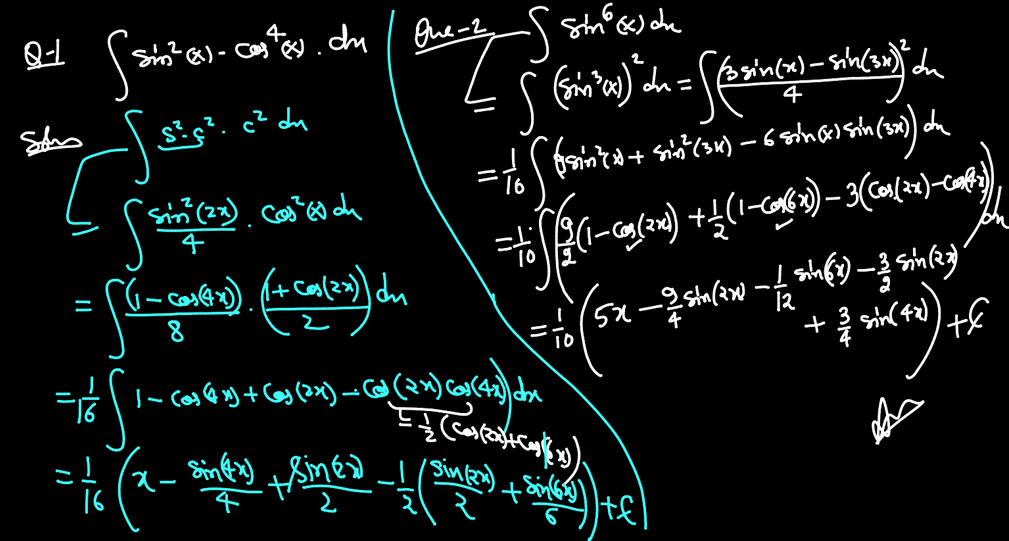 Q-1 ∫ sin²(x) - cos⁴(x) . dx
Soln ∫ s²-c² . c² dx
= ∫ sin²(2x)/4 . cos²(x) dx
= ∫ (1 - cos(4x))/8 . (1 + cos(2x))/2) dx
= 1/16 ∫ 1 - cos(4x) + cos(2x) - cos(2x) cos(4x)) dx
= 1/2 (cos(2x) + cos(6x))
= 1/16 (x - sin(4x)/4 + sin(2x)/2 - 1/2 (sin(2x)/2 + sin(6x)/6)) + C
Que-2 ∫ sin⁶(x) dx
= ∫ (sin³(x))² dx = ∫ (3 sin(x) - sin(3x)/4)² dx
= 1/16 ∫ (9sin²(x) + sin²(3x) - 6 sin(x) sin(3x)) dx
= 1/10 ∫ (9/2 (1 - cos(2x)) + 1/2 (1 - cos(6x)) - 3(cos(2x) - cos(4x))) dx
= 1/10 (5x - 9/4 sin(2x) - 1/12 sin(6x) - 3/2 sin(2x)
+ 3/4 sin(4x)) + C